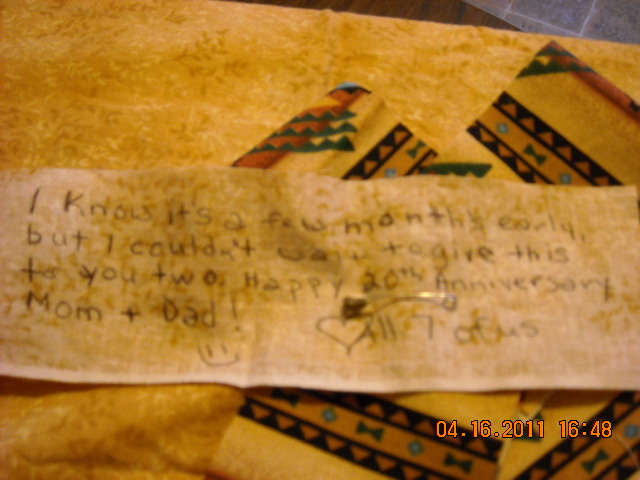 I Know it's a few months early,
but I couldn't wait to give this
to you two. Happy 20th Anniversary
Mom + Dad!
All 7 of us
04.16.2011 16:48